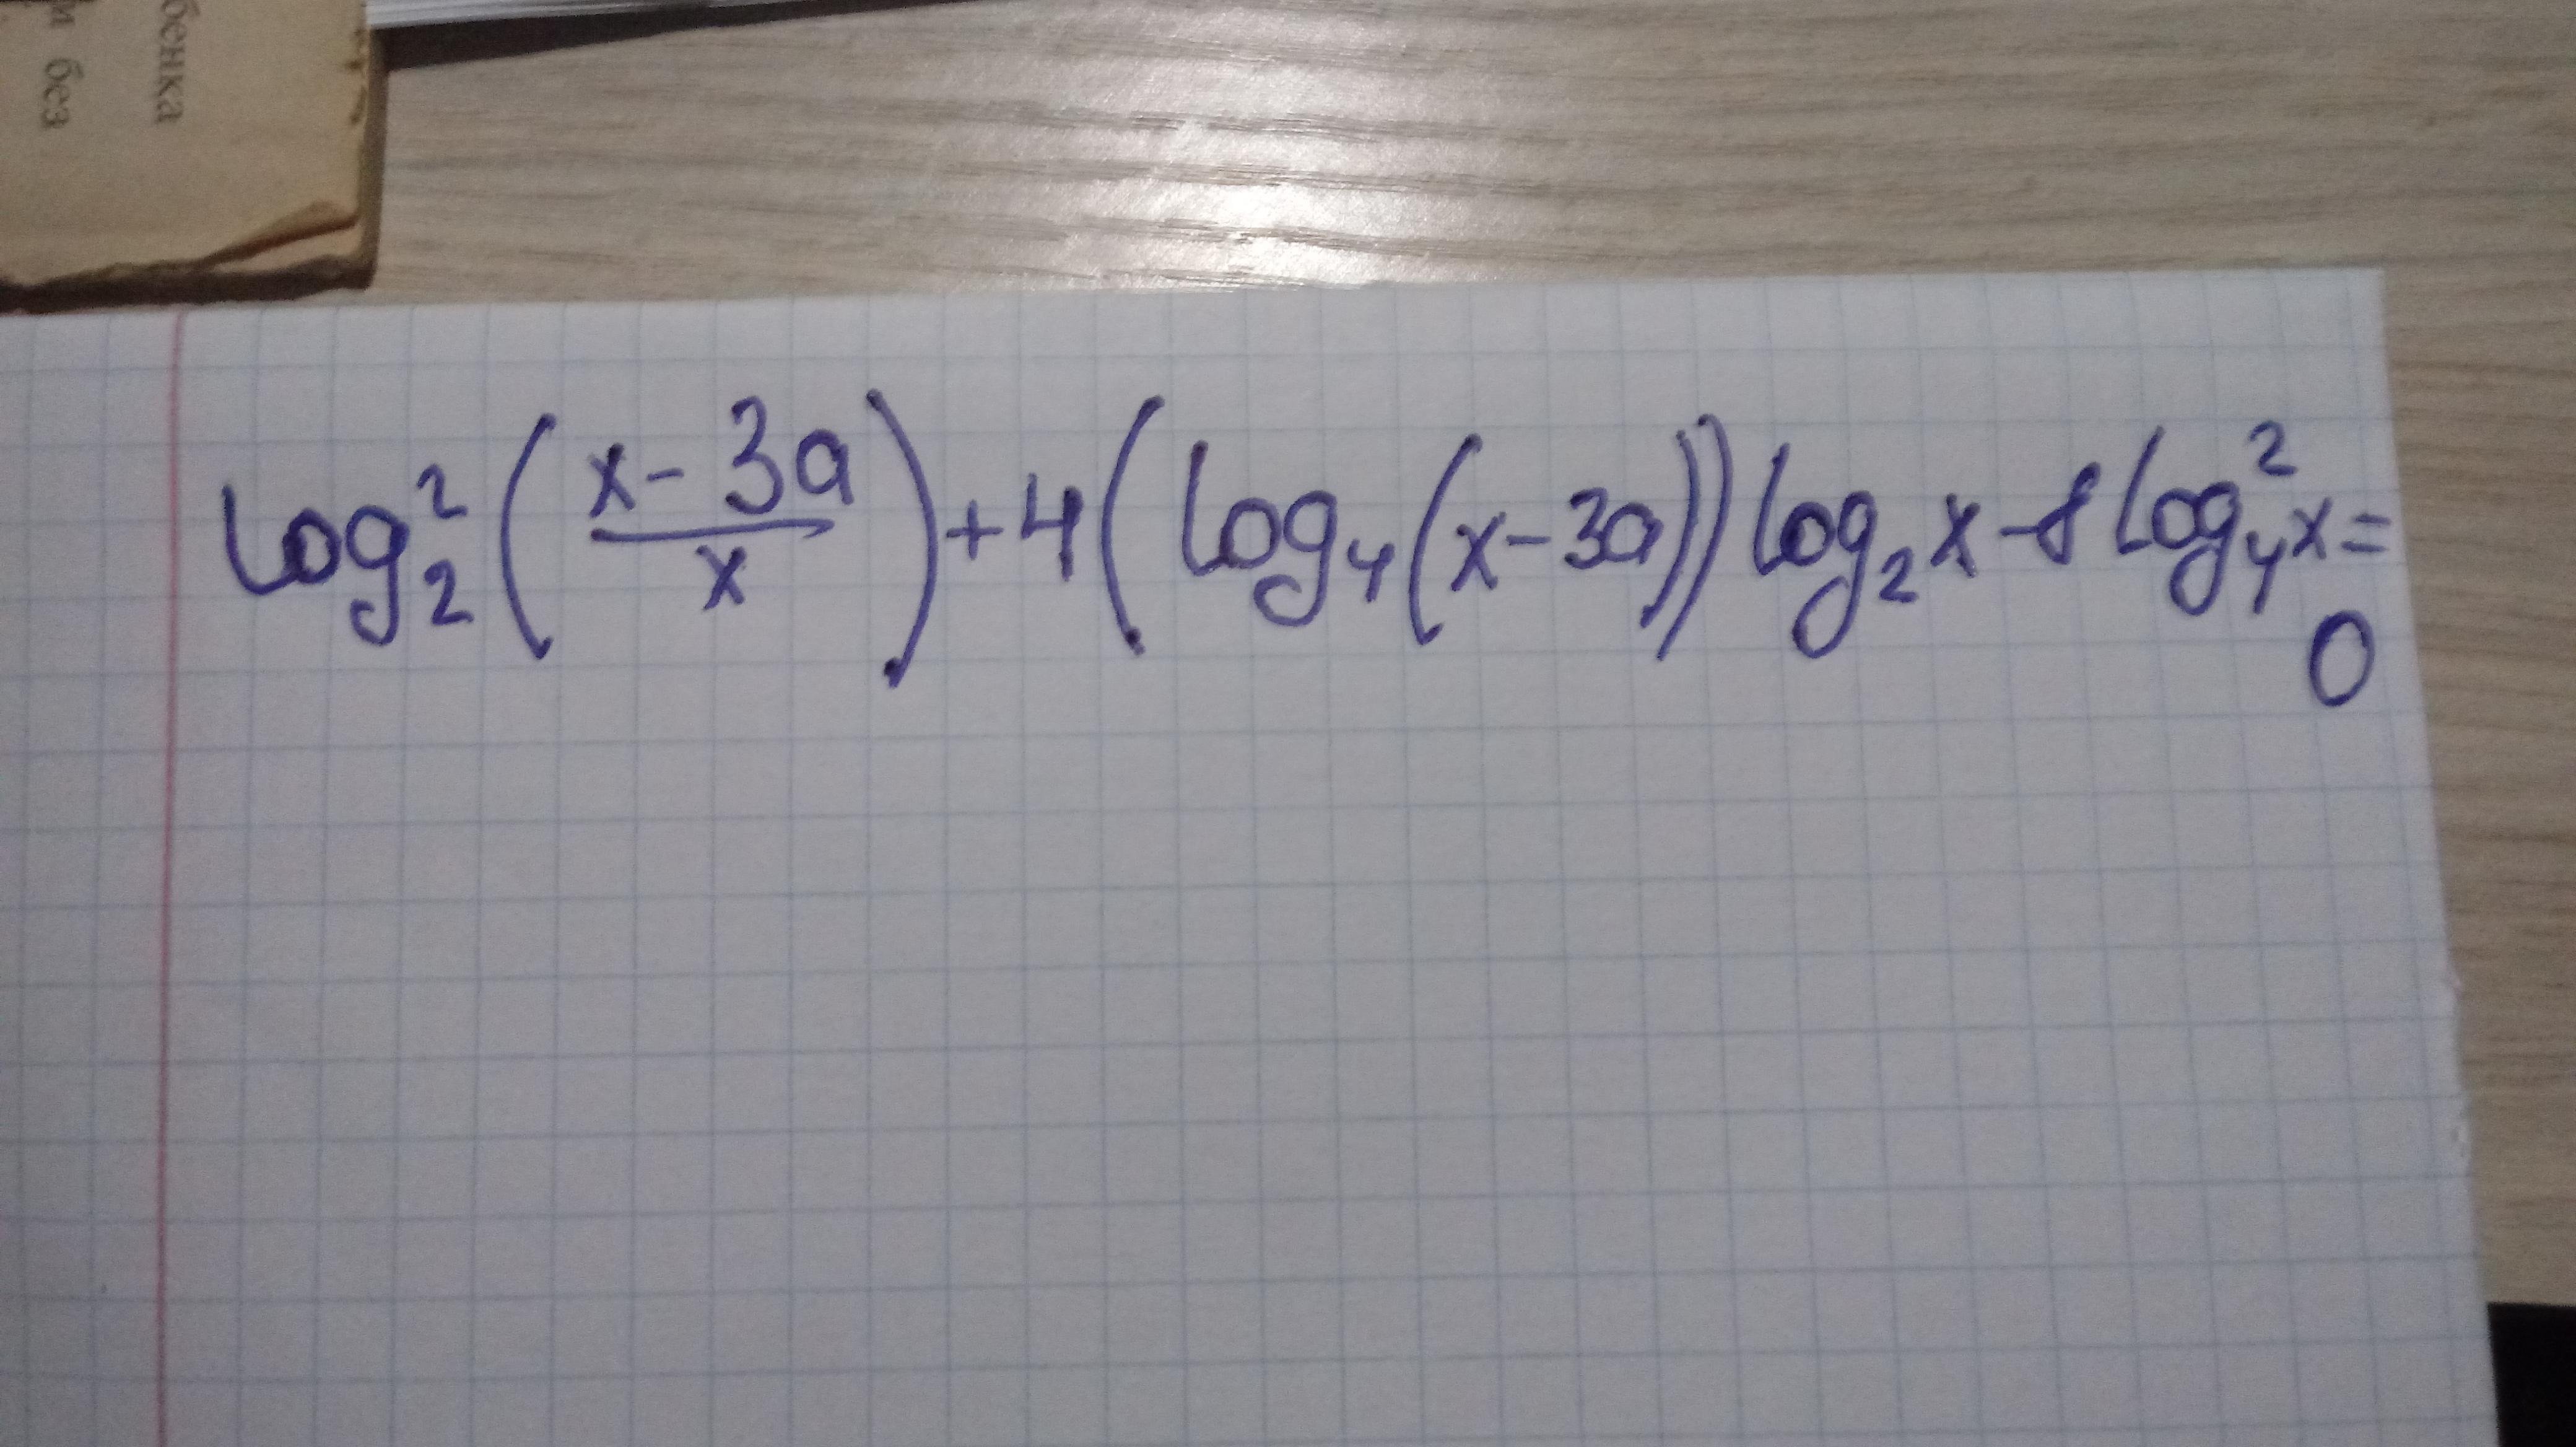 бенка
м без
log₂²((x-3a)/x)+4(log₄(x-3a))log₂x-8log₄²x=
0